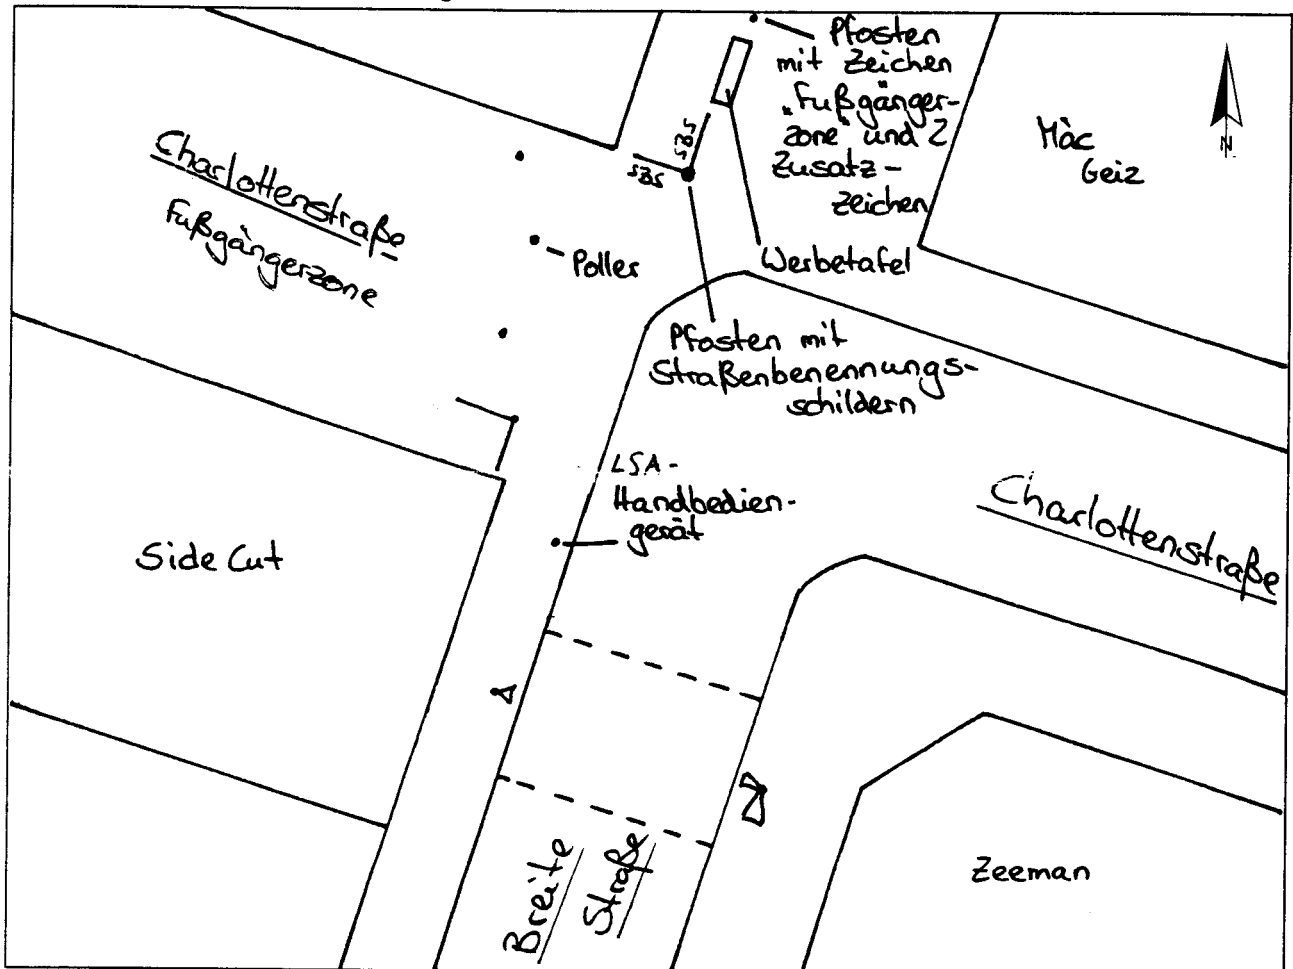 Pfosten
mit Zeichen
„Fußgänger-
zone“ und 2
Zusatz-
zeichen
Màc
Geiz
N
Charlottenstraße
Fußgängerzone
SBS
SBS
Poller
Werbetafel
Pfosten mit
Straßenbenennungs-
schildern
LSA-
Handbedien-
gerät
Charlottenstraße
Side Cut
Breite
Straße
Zeeman